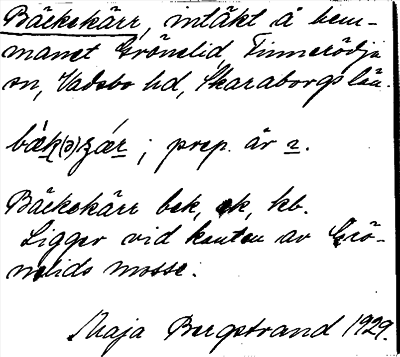 Bäckekärr, intäkt å hem-
manet Grönelid, Finnerödja
sn, Vadsbo hd, Skaraborgs län.
bä́k(ə)ɕær; prep. är 2.
Bäckekärr bek, ek, kb.
Ligger vid kanten av Grö-
nelids mosse.
Maja Bergstrand 1929.